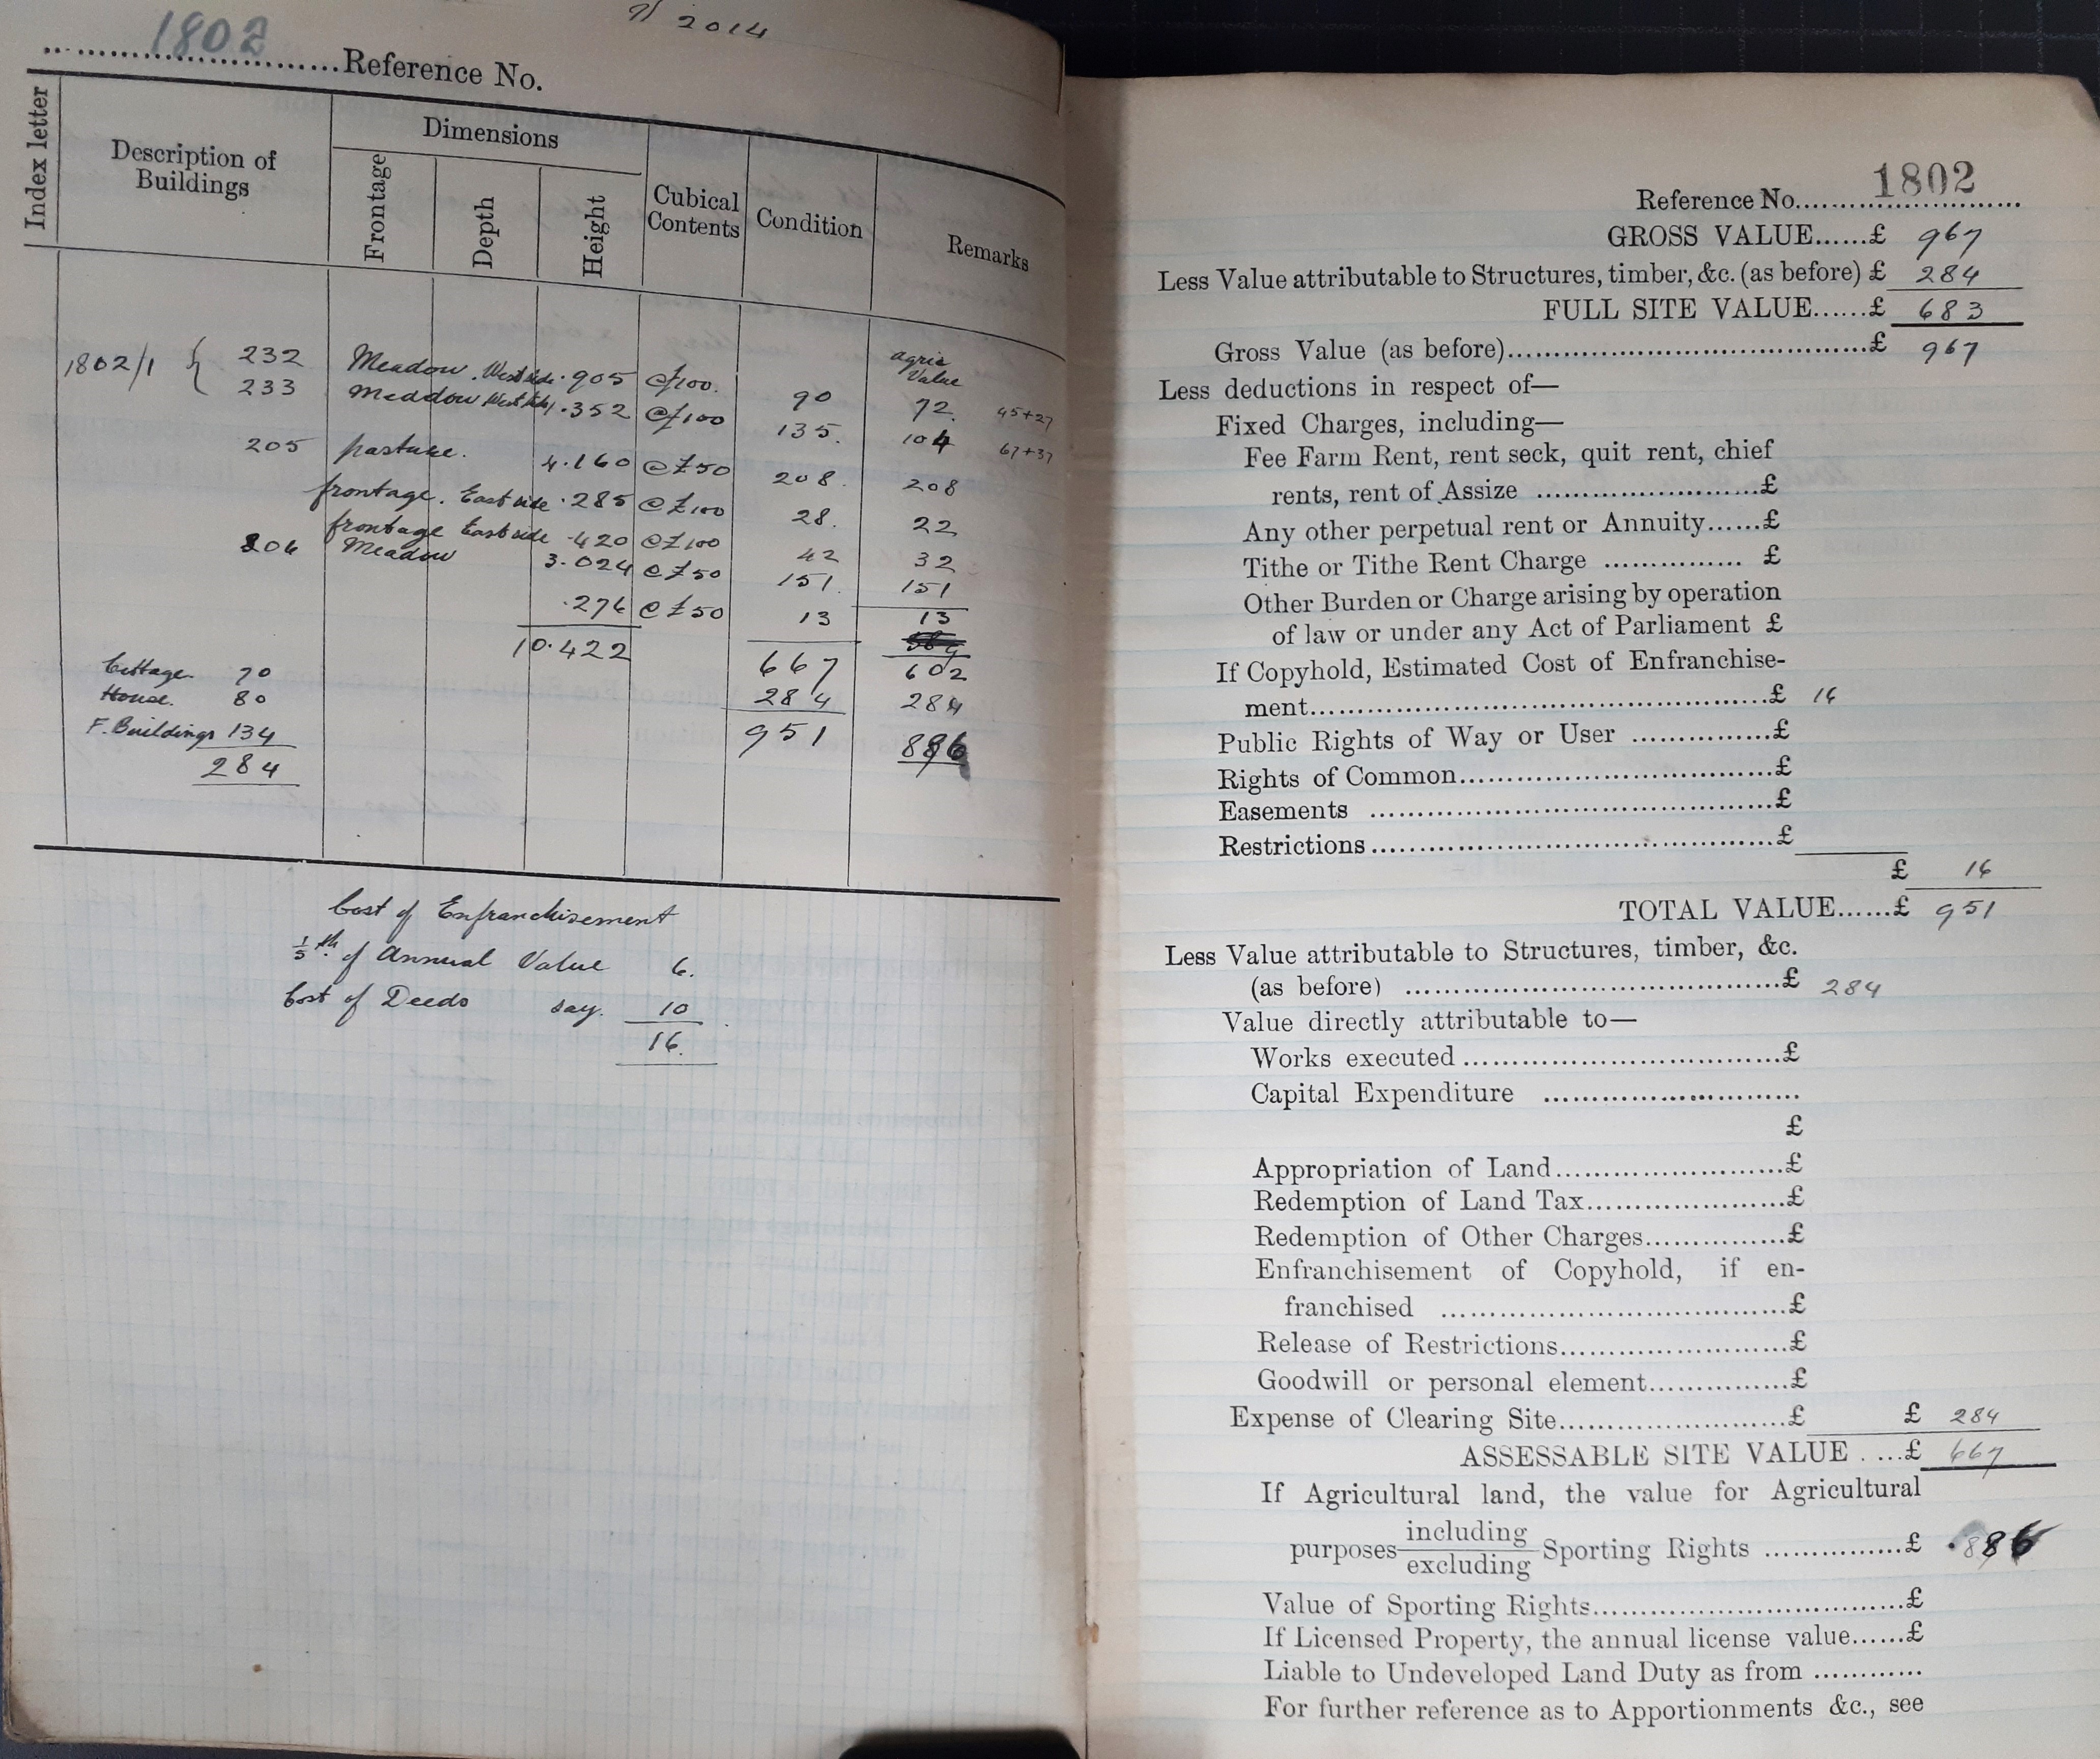 2014
1802 Reference No.
Index letter
Description of Buildings
Dimensions
Frontage
Depth
Height
Cubical Contents
Condition
Remarks
agric Value
1802/1 { 232 Meadow. West side .905 @£100. 90 72 45+27
233 Meadow West side 1.352 @£100 135. 104 67+37
205 pasture. 4.160 @£50 208. 208
frontage. East side .285 @£100 28. 22
frontage East side .420 @£100 42 32
206 Meadow 3.024 @£50 151. 151
.276 @£50 13 13
10.422 667 602
284 284
951 886
Cottage. 70
House. 80
F. Buildings 134
284
Cost of Enfranchisement
1/5th of Annual Value 6.
Cost of Deeds say. 10
16.
Reference No. 1802
GROSS VALUE......£ 967
Less Value attributable to Structures, timber, &c. (as before) £ 284
FULL SITE VALUE......£ 683
Gross Value (as before)......£ 967
Less deductions in respect of—
Fixed Charges, including—
Fee Farm Rent, rent seck, quit rent, chief
rents, rent of Assize ......£
Any other perpetual rent or Annuity......£
Tithe or Tithe Rent Charge ...... £
Other Burden or Charge arising by operation
of law or under any Act of Parliament £
If Copyhold, Estimated Cost of Enfranchise-
ment......£ 16
Public Rights of Way or User ......£
Rights of Common......£
Easements ......£
Restrictions......£
£ 16
TOTAL VALUE......£ 951
Less Value attributable to Structures, timber, &c.
(as before) ......£ 284
Value directly attributable to—
Works executed ......£
Capital Expenditure ......
£
Appropriation of Land......£
Redemption of Land Tax......£
Redemption of Other Charges......£
Enfranchisement of Copyhold, if en-
franchised ......£
Release of Restrictions......£
Goodwill or personal element......£
Expense of Clearing Site......£ £ 284
ASSESSABLE SITE VALUE ....£ 667
If Agricultural land, the value for Agricultural
purposes including/excluding Sporting Rights ......£ 886
Value of Sporting Rights......£
If Licensed Property, the annual license value......£
Liable to Undeveloped Land Duty as from ......
For further reference as to Apportionments &c., see